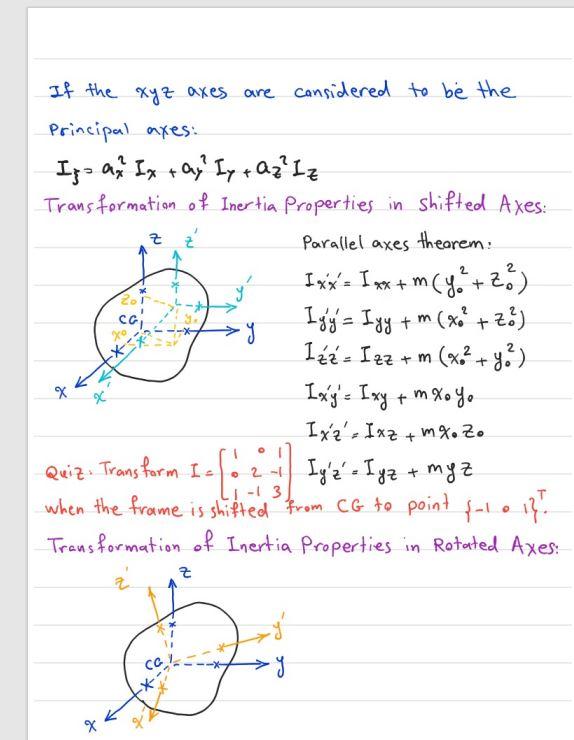 If the xyz axes are considered to be the
Principal axes:
Iξ = ax² Ix + ay² Iy + az² Iz
Transformation of Inertia Properties in Shifted Axes:
z z'
y'
z₀
CG
y₀
x₀
y
x x'
Parallel axes theorem:
Ix'x' = Ixx + m(y₀² + z₀²)
Iy'y' = Iyy + m(x₀² + z₀²)
Iz'z' = Izz + m(x₀² + y₀²)
Ix'y' = Ixy + m x₀ y₀
Ix'z' = Ixz + m x₀ z₀
Iy'z' = Iyz + m y z
Quiz: Transform I = [1 0 1
0 2 -1
1 -1 3]
when the frame is shifted from CG to point {-1 0 1}ᵀ.
Transformation of Inertia Properties in Rotated Axes:
z' z
y'
CG
y
x x'